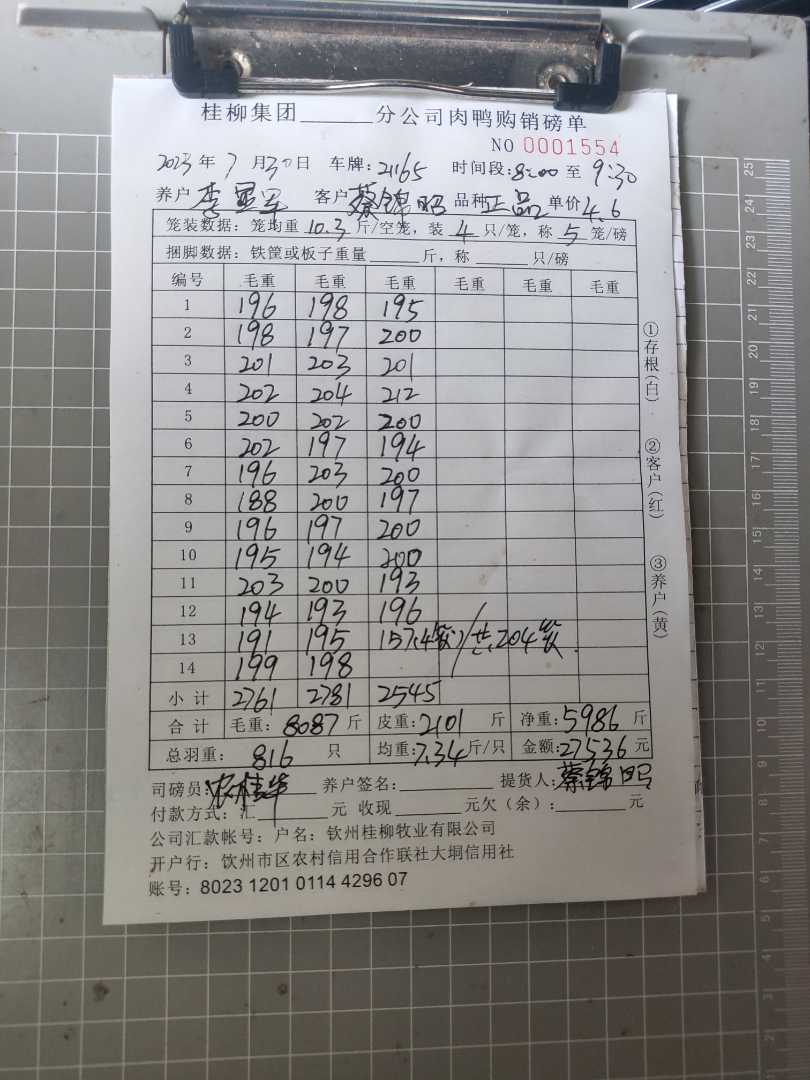 桂柳集团______分公司肉鸭购销磅单
NO 0001554
2023年7月30日 车牌:21165 时间段:8:00至9:30
养户 李显军 客户 蔡锦昭 品种 正品 单价 4.6
笼装数据:笼均重 10.3 斤/空笼,装 4 只/笼,称 5 笼/磅
捆脚数据:铁筐或板子重量______斤,称______只/磅
编号 毛重 毛重 毛重 毛重 毛重 毛重
1 196 198 195
2 198 197 200
3 201 203 201
4 202 204 212
5 200 202 200
6 202 197 194
7 196 203 200
8 188 200 197
9 196 197 200
10 195 194 200
11 203 200 193
12 194 193 196
13 191 195 157(4笼) 共204笼
14 199 198
小计 2761 2781 2545
合计 毛重:8087斤 皮重:2101斤 净重:5986斤
总羽重:816只 均重:7.34斤/只 金额:27536元
司磅员:农桂华 养户签名:______ 提货人:蔡锦昭
付款方式:汇______元 收现______元欠(余):______元
公司汇款帐号:户名:钦州桂柳牧业有限公司
开户行:饮州市区农村信用合作联社大垌信用社
账号:8023 1201 0114 4296 07
①存根(白)
②客户(红)
③养户(黄)
25
24
23
22
21
20
19
18
17
16
15
14
13
12
11
10
9
8
7
6
5
4
3
2
1